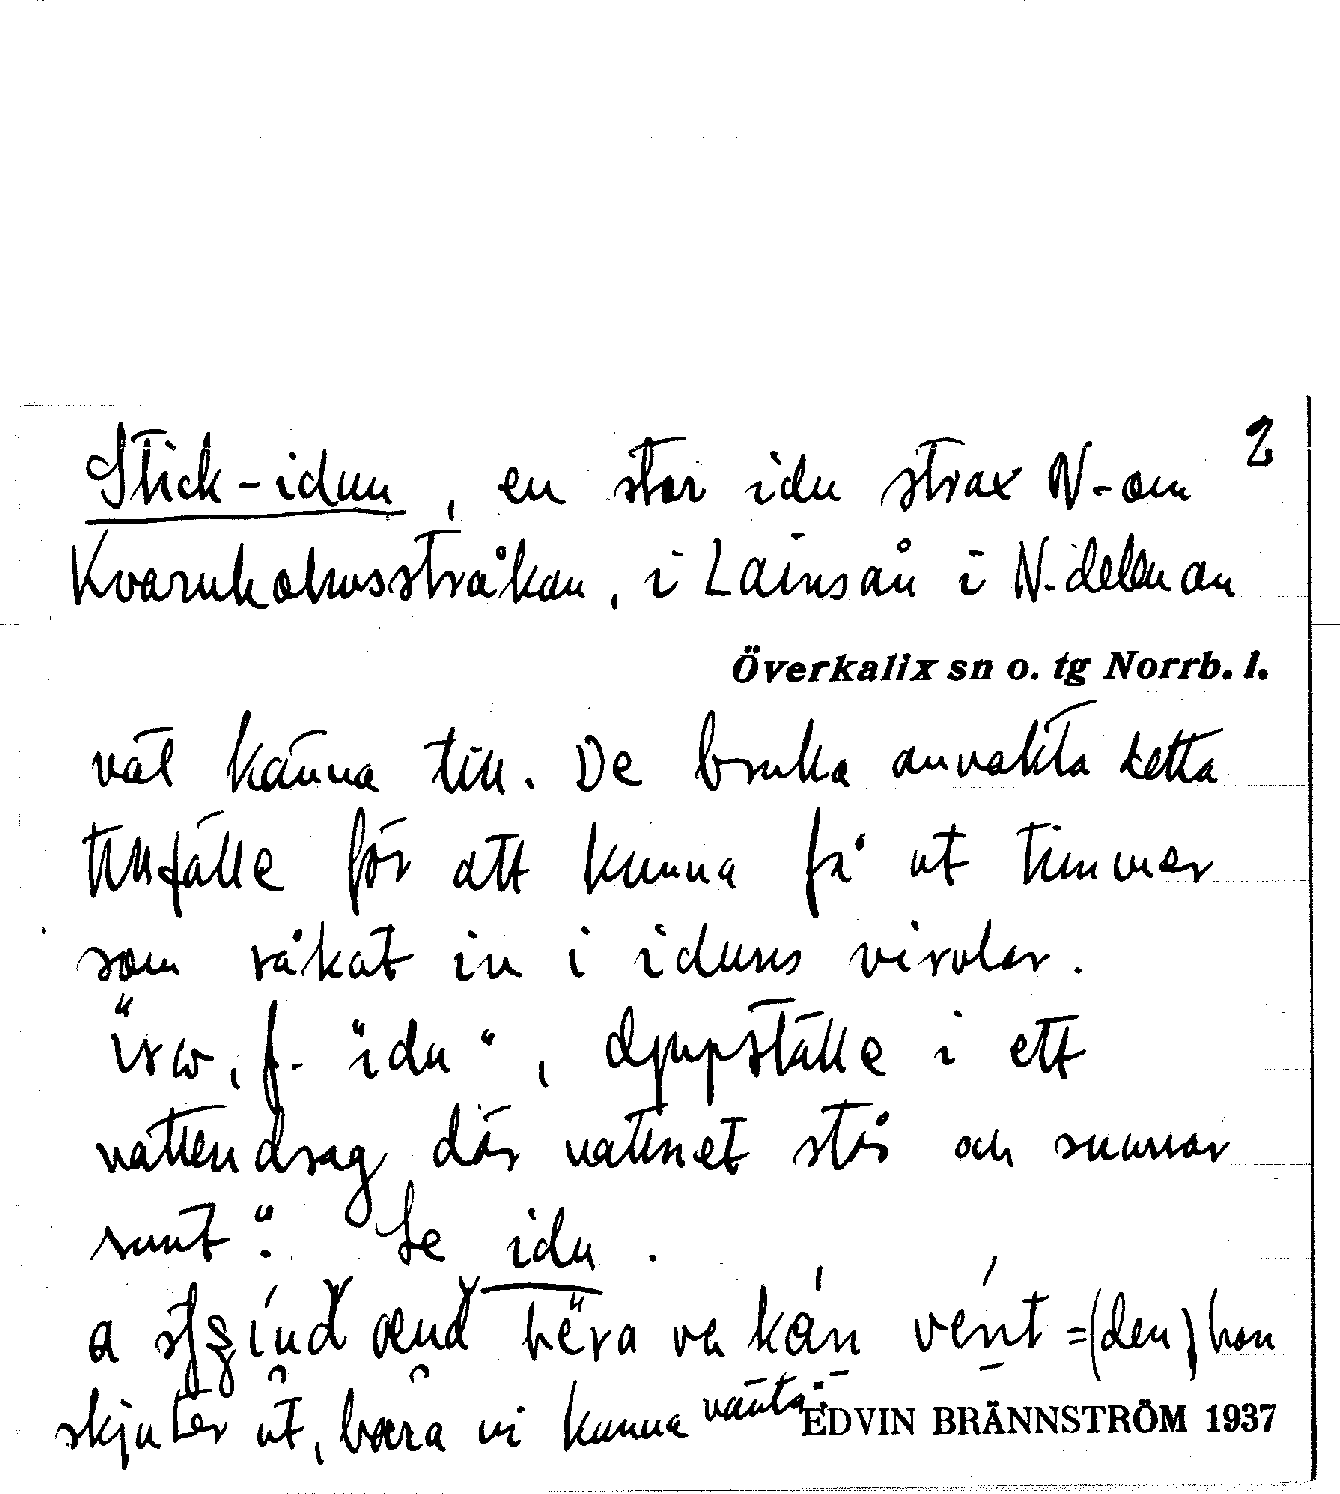 2
Stick-idun, en stor idu strax N-om
Kvarnholmsstråkan, i Lainsån i N-delen av
Överkalix sn o. tg Norrb. l.
väl känna till. De bruka avvakta detta
tillfälle för att kunna få ut timmer
som råkat in i iduns virvlar.
f. "idu", djupställe i ett
vattendrag där vattnet står och snurrar
runt". Se idu.
a bëra va kán vént =(den) hon
skjuter ut, bara vi kunna vänta.
EDVIN BRÄNNSTRÖM 1937